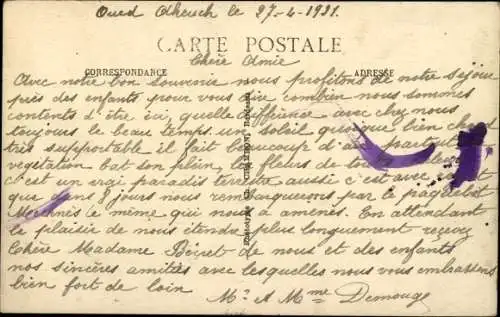 Oued Akreuch le 27-4-1921.
CARTE POSTALE
CORRESPONDANCE
ADRESSE
Chère Amie
Avec notre bon souvenir nous profitons de notre séjour
près des enfants pour vous dire combien nous sommes
contents d'être ici, quelle différence avec chez nous
toujours le beau temps. un soleil quoique bien chaud
très supportable il fait beaucoup d'air
végétation bat son plein, les fleurs de
c'est un vrai paradis terrestre aussi c'est avec
que dans 8 jours nous rembarquerons par le paquebot
Meknès le même qui nous a amenés. En attendant
le plaisir de nous étendre plus longuement recevez
Chère Madame de nous et des enfants
nos sincères amitiés avec lesquelles nous vous embrassons
bien fort de loin
Mr & Mme Demouge